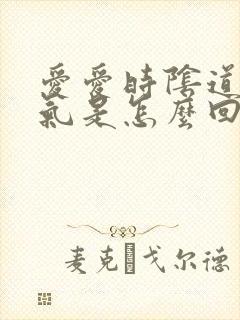 愛愛時陰道
氣是怎麼回
麦克·戈尔德